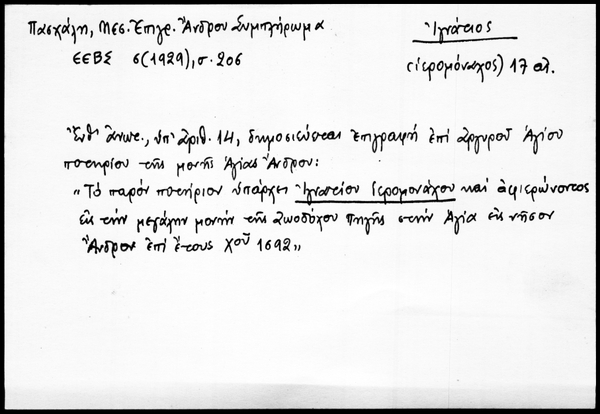 Πασχάλη, Μεσ. Ἐπιγρ. Ἄνδρου Συμπλήρωμα
ΕΕΒΣ 6(1929), σ. 206
Ἰγνάτιος
(ἱερομόναχος) 17 αἰ.
Ἔνθ' ἀνωτ., ὑπ' ἀριθ. 14, δημοσιεύεται ἐπιγραφή ἐπί ἀργυροῦ Ἁγίου
ποτηρίου τῆς μονῆς Ἁγίας Ἄνδρου:
"Τό παρόν ποτήριον ὑπάρχει Ἰγνατίου Ἱερομονάχου καί ἀφιερώνοντος
εἰς τήν μεγάλην μονήν τῆς Ζωοδόχου Πηγῆς στήν Ἁγία εἰς νῆσον
Ἄνδρον ἐπί ἔτους χοῦ 1692"